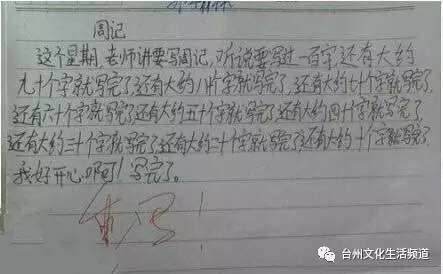 周记
这个星期,老师讲要写周记,听说要写过一百字还有大约
九十个字就写完了,还有大约八十个字就写完了,还有大约七十个字就写完了,
还有六十个字就写完了还有大约五十个字就写完了,还有大约四十个字就写完了,
还有大约三十个字就写完了还有大约二十个字就写完了还有大约十个字就写完了.
我好开心啊!写完了。
重写!
台州文化生活频道